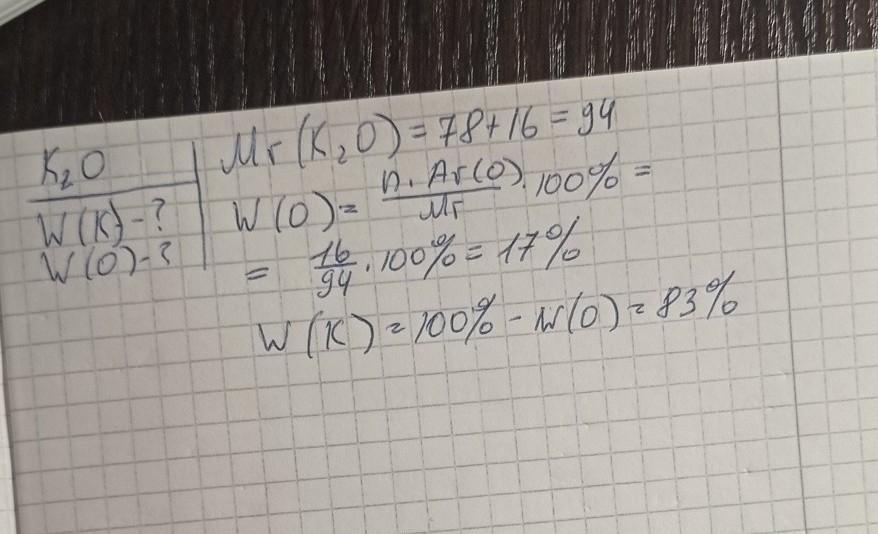 K₂O
W(K)-?
W(O)-?
Mr(K₂O)=78+16=94
W(O)= n·Ar(O)/Mr · 100% =
= 16/94 · 100% = 17%
W(K)=100%-W(O)=83%